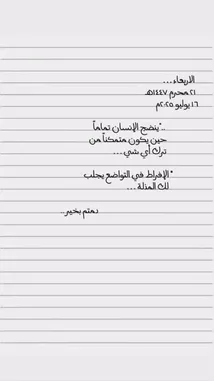 الاربعاء...
٢١ محرم ١٤٤٧هـ
١٦ يوليو ٢٠٢٥م
.."ينضج الإنسان تماماً
حين يكون متمكناً من
ترك أي شي...
*الإفراط في التواضع يجلب
لك المذلة...
دمتم بخير..